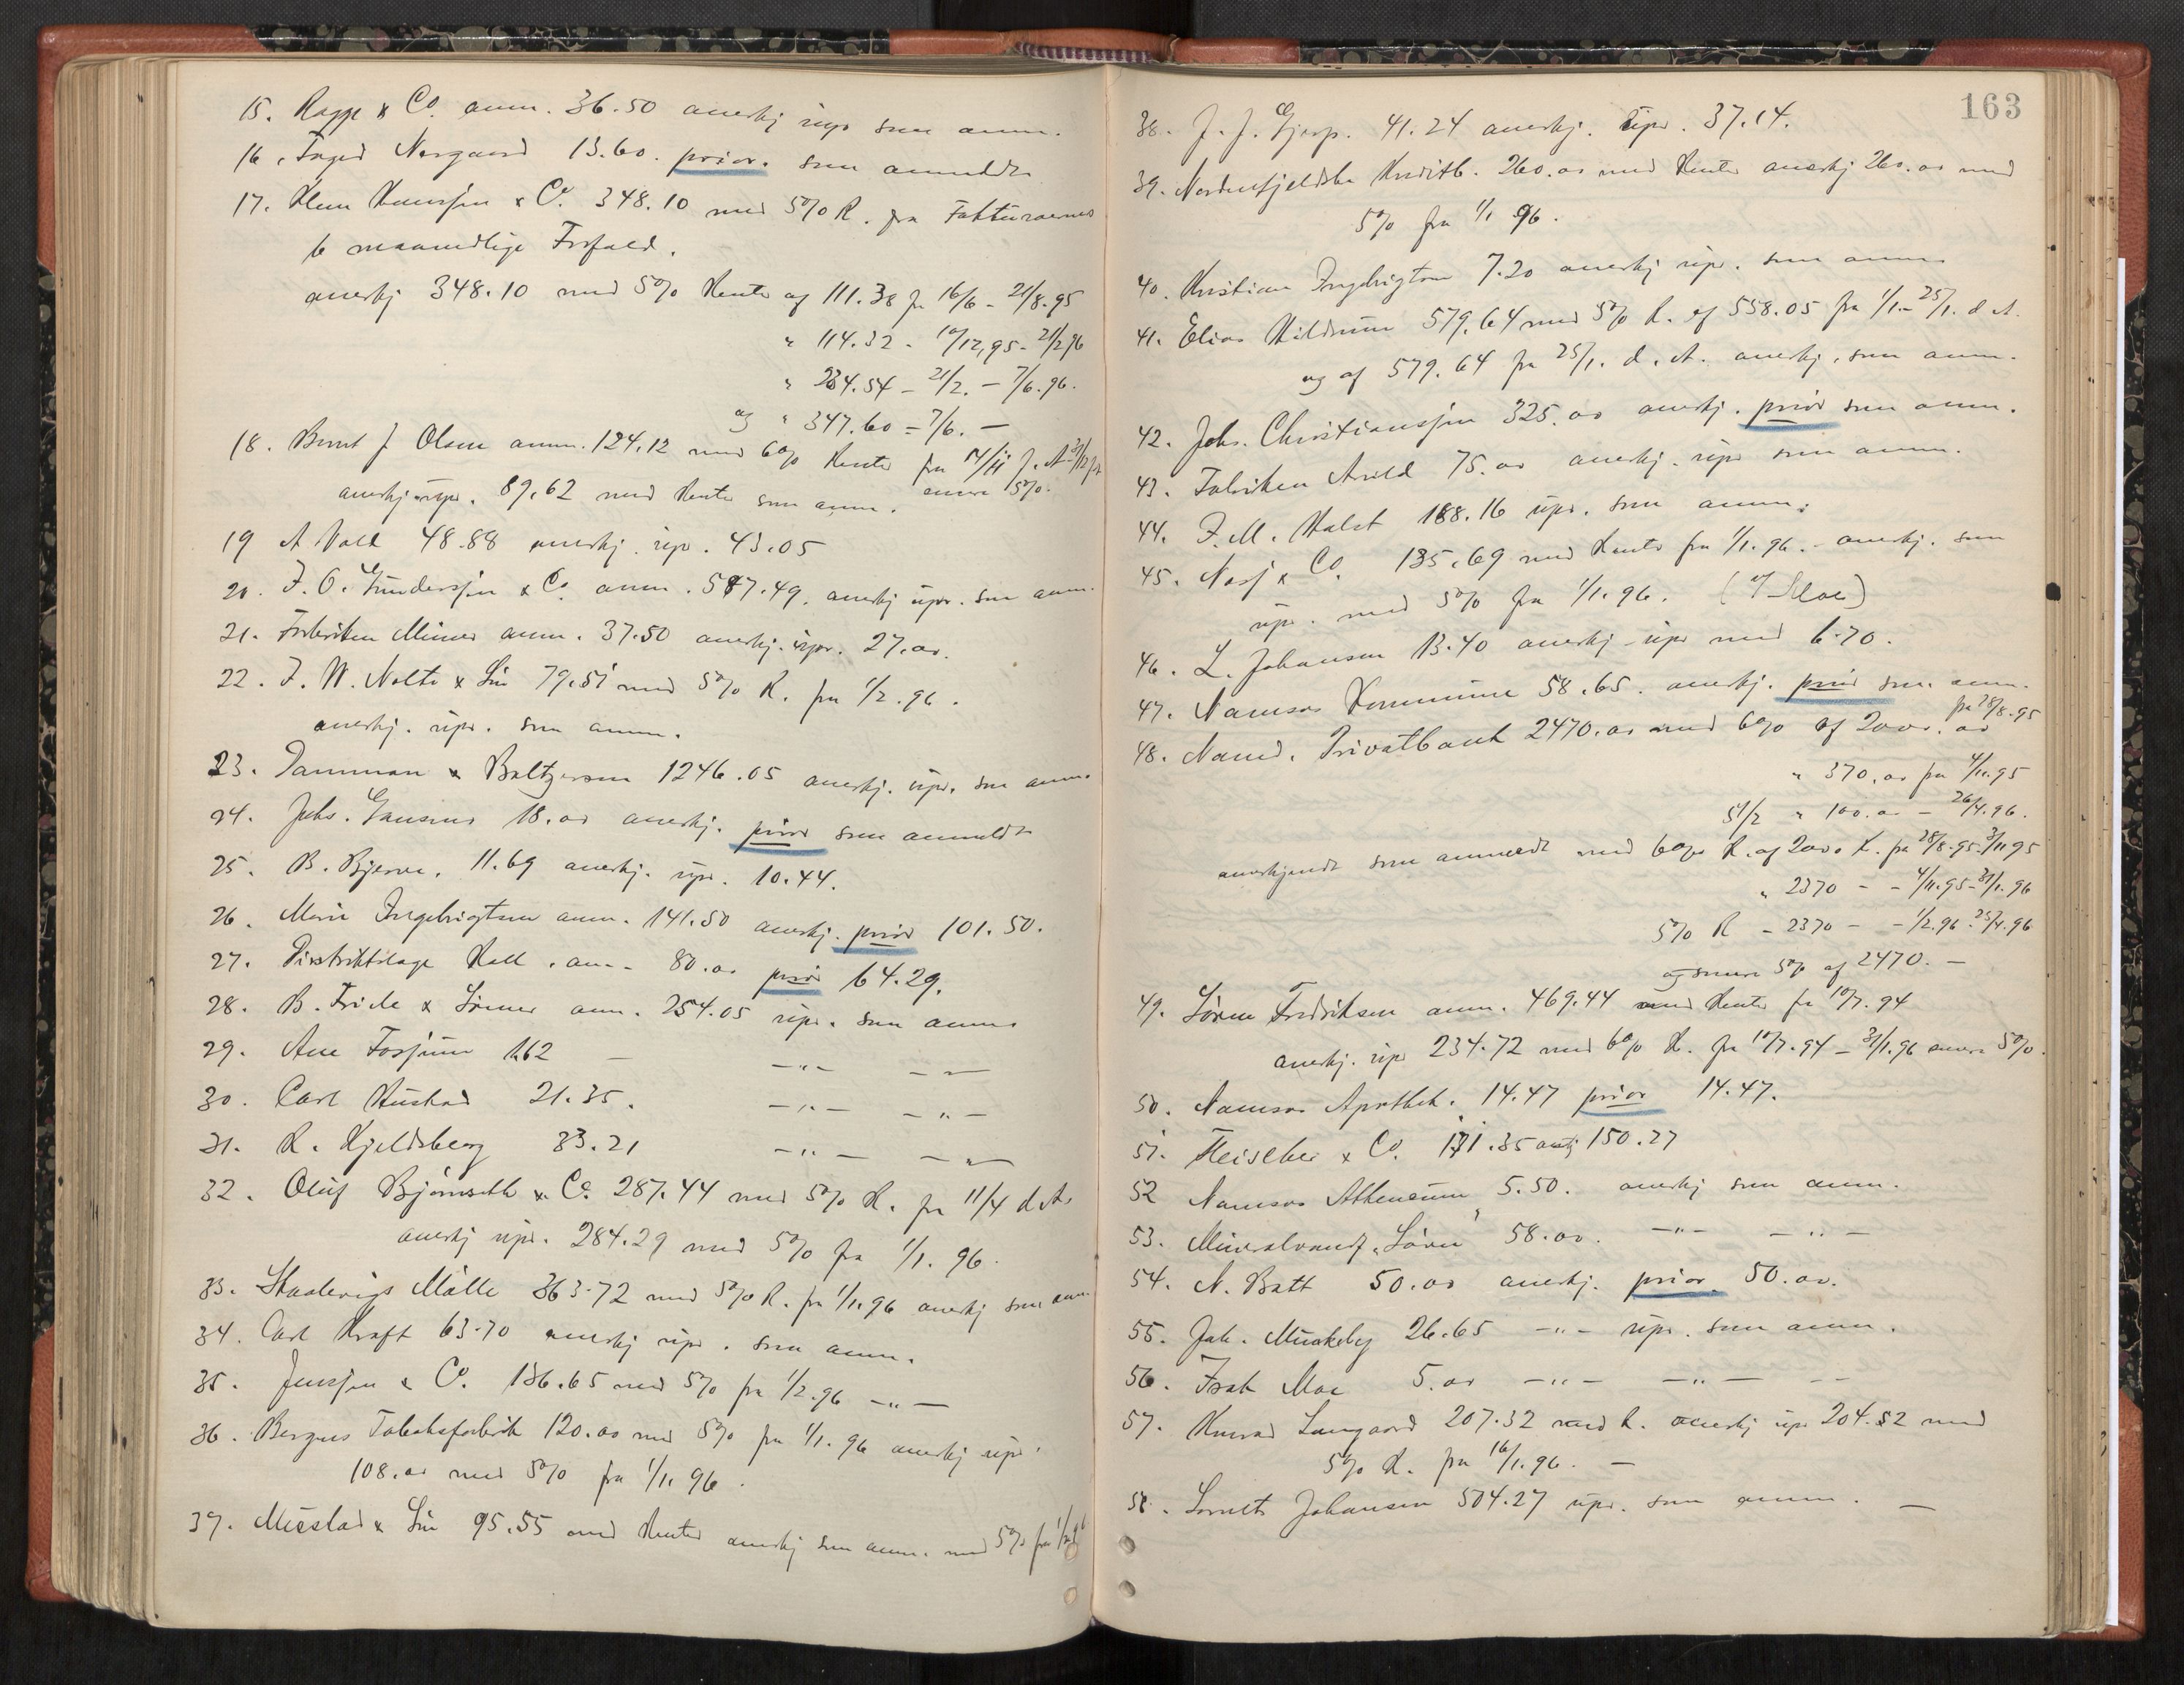 15. Ragge & Co. anm. 36.50 anerkj upr som anm.
16. Inged Norgaard 13.60. prior. som anmeldt
17. Klem Hanssen & Co. 348.10 med 5% R. fra Fakturaernes
6 maanedlige Forfald.
anerkj 348.10 med 5% Rente af 111.38 fr 16/6 - 21/8.95
" 114.32 - 10/12,95 - 21/2 96
" 234.54 - 21/2. - 7/6.96.
og " 347.60 - 7/6. -
18. Bernt J Olsen anm. 124.12 med 6% Rente fra 14/11 f. A
anerkj upr. 89.62 med Rente som anm. senere 5%.
19 A Vold 48.88 anerkj. upr. 43.05
20. J. O. Gunderssen & Co. anm. 587.49. anerkj upr. som anm.
21. Fabriken Minus anm. 37.50 anerkj. upr. 27.00.
22. J. W. Nolte & Søn 79.51 med 5% R. fra 1/2.96.
anerkj. upr. som anm.
23. Damman & Baltzersen 1246.05 anerkj. upr. som anm.
24. Johs. Gausnes 18.00 anerkj. prior som anmeldt
25. B. Bjerve. 11.69 anerkj. upr. 10.44.
26. Marie Ingebrigtsen anm. 141.50 anerkj. prior 101.50.
27. Distriktslæge Hall. anm. 80.00 prior 64.29.
28. B. Friele & Sønner anm. 254.05 upr. som anm.
29. Ane Fossum 162 — -"- - -
30. Carl Hustad 21.35. -"- -"-
31. R. Kjeldsberg 33.21 -"- -"-
32. Oluf Bjørnseth & Co. 287.44 med 5% R. fr 11/4 d. A.
anerkj upr. 284.29 med 5% fra 1/1. 96.
33. Staalevigs Mølle 363.72 med 5% R. fr 1/1.96 anerkj som anm
34. Carl Kraft 63.70 anerkj upr. som anm.
35. Jenssen & Co. 136.65 med 5% fra 1/2.96 -"-
36. Bergens Tobaksfabrik 120.00 med 5% fra 1/1.96 anerkj upr.
108.00 med 5% fra 1/1. 96.
37. & Søn 95.55 med Rente anerkj som anm. med 5% fra
163
38. J. J. 41.24 anerkj. upr. 37.14.
39. Nordenfjeldske Kreditb. 260.00 med Rente anerkj 260.00 med
5% fra 1/1 96.
40. Kristian Ingebrigtsen 7.20 anerkj upr. som anm.
41. Elias Hildrum 579.64 med 5% R. af 558.05 fra 1/1. - 25/1. d. A.
og af 579.64 fra 25/1. d. A. anerkj. som anm.
42. Johs. Christianssen 325.00 anerkj. prior som anm.
43. Fabriken Arild 75.00 anerkj. upr som anm.
44. F. M. Holst 188.16 upr. som anm.
45. & Co. 135.69 med Rente fra 1/1.96. - anerkj. som
upr. med 5% fra 1/1.96.
46. L. Johansen 13.40 anerkj upr med 6.70.
47. Namsos Kommune 58.65. anerkj. prior som anm.
48. Namd. Privatbank 2470.00 med 6% af 2000.00 fra 28/8.95
" 370.00 fra 4/11.95
5 1/2 " 100.00 - 26/4.96.
anerkjendt som anmeldt med 6% R. af 2000 K. fra 28/8.95 - 3/11 95
" 2370 - - 4/11.95 - 31/1.96
5% R - 2370 - - 1/2.96 - 25/4.96
og senere 5% af 2470. -
49. Søren Fredriksen anm. 469.44 med Rente fr 10/7.94
anerkj. upr 234.72 med 6% R. fra 10/7.94 - 31/1.96 senere 5%.
50. Namsos Apothek. 14.47 prior 14.47.
51. Heiselbee & Co. 171.35 anerkj 150.27
52 Namsos Atheneum 5.50. anerkj som anm.
53. Mineralvandf. "Løven" 58.00. -"- -"-
54. N. Bøtt 50.00 anerkj. prior. 50.00.
55. Joh. Munkeby 26.65 -"- upr. som anm.
56. Isak Moe 5.00 -"- -"- - -
57. Konrad Langaard 207.32 med R. anerkj upr 204.52 med
5% R. fra 16/1.96. -
58. Lornts Johansen 504.27 upr. som anm. -